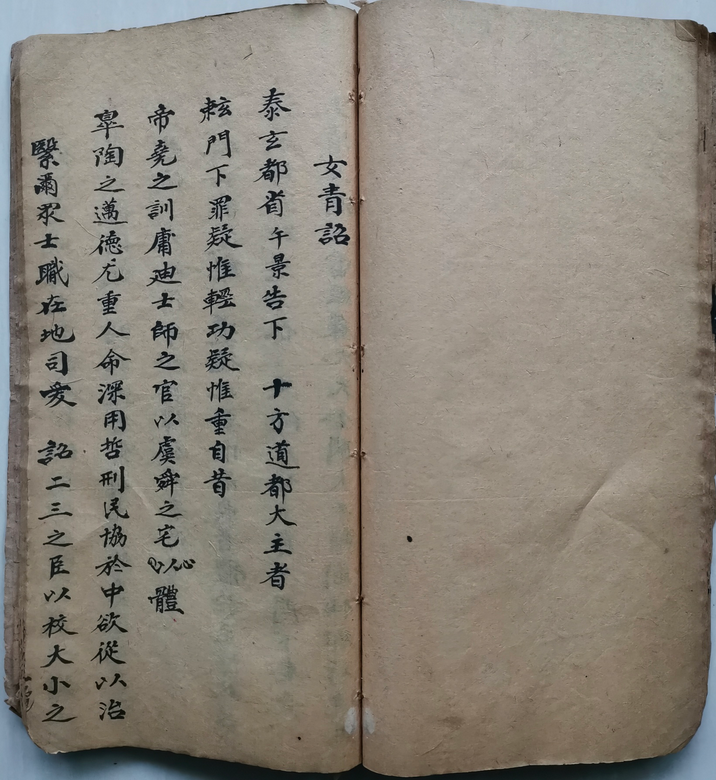 女青詔
泰玄都省午景告下 十方道都大主者
門下罪疑惟輕功疑惟重自昔
帝堯之訓庸迪士師之官以虞舜之宅心以體
皐陶之邁德尤重人命深用哲刑民協於中欲從以治
繄爾眾士職在地司爰 詔二三之臣以校大小之